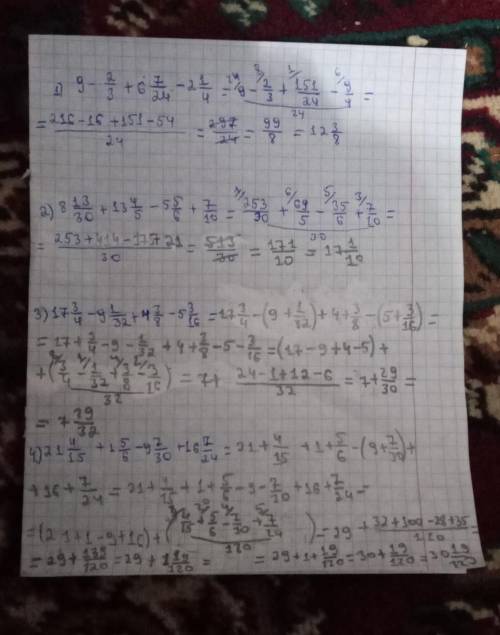 1) 9 - 2/3 + 6 7/24 - 2 1/4 = 24/9 - 8/2/3 + 1/151/24 - 6/9/4 =
24
= (216 - 16 + 151 - 54)/24 = 297/24 = 99/8 = 12 3/8
2) 8 13/30 + 13 4/5 - 5 5/6 + 7/10 = 1/253/30 + 6/69/5 - 5/35/6 + 3/7/10 =
30
= (253 + 414 - 175 + 21)/30 = 513/30 = 171/10 = 17 1/10
3) 17 3/4 - 9 1/32 + 4 3/8 - 5 3/16 = 17 3/4 - (9 + 1/32) + 4 + 3/8 - (5 + 3/16) =
= 17 + 3/4 - 9 - 1/32 + 4 + 3/8 - 5 - 3/16 = (17 - 9 + 4 - 5) +
+ (3/4 - 1/32 + 3/8 - 3/16) = 7 + (24 - 1 + 12 - 6)/32 = 7 + 29/30 =
32
= 7 29/32
4) 21 4/15 + 1 5/6 - 9 7/30 + 16 7/24 = 21 + 4/15 + 1 + 5/6 - (9 + 7/30) +
+ 16 + 7/24 = 21 + 4/15 + 1 + 5/6 - 9 - 7/30 + 16 + 7/24 =
= (21 + 1 - 9 + 16) + (4/15 + 5/6 - 7/30 + 7/24) = 29 + (32 + 100 - 28 + 35)/120 =
120
= 29 + 139/120 = 29 + 1 19/120 = = 29 + 1 + 19/120 = 30 + 19/120 = 30 19/120